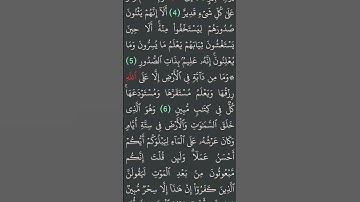 عَلَىٰ كُلِّ شَيْءٍ قَدِيرٌ (4) أَلَآ إِنَّهُمْ يَثْنُونَ
صُدُورَهُمْ لِيَسْتَخْفُوا۟ مِنْهُ ۚ أَلَا حِينَ
يَسْتَغْشُونَ ثِيَابَهُمْ يَعْلَمُ مَا يُسِرُّونَ وَمَا
يُعْلِنُونَ ۚ إِنَّهُۥ عَلِيمٌۢ بِذَاتِ ٱلصُّدُورِ (5)
۞ وَمَا مِن دَآبَّةٍ فِى ٱلْأَرْضِ إِلَّا عَلَى ٱللَّهِ
رِزْقُهَا وَيَعْلَمُ مُسْتَقَرَّهَا وَمُسْتَوْدَعَهَا ۚ
كُلٌّ فِى كِتَٰبٍ مُّبِينٍ (6) وَهُوَ ٱلَّذِى
خَلَقَ ٱلسَّمَٰوَٰتِ وَٱلْأَرْضَ فِى سِتَّةِ أَيَّامٍ
وَكَانَ عَرْشُهُۥ عَلَى ٱلْمَآءِ لِيَبْلُوَكُمْ أَيُّكُمْ
أَحْسَنُ عَمَلًا ۗ وَلَئِن قُلْتَ إِنَّكُم
مَّبْعُوثُونَ مِنۢ بَعْدِ ٱلْمَوْتِ لَيَقُولَنَّ
ٱلَّذِينَ كَفَرُوٓا۟ إِنْ هَٰذَآ إِلَّا سِحْرٌ مُّبِينٌ